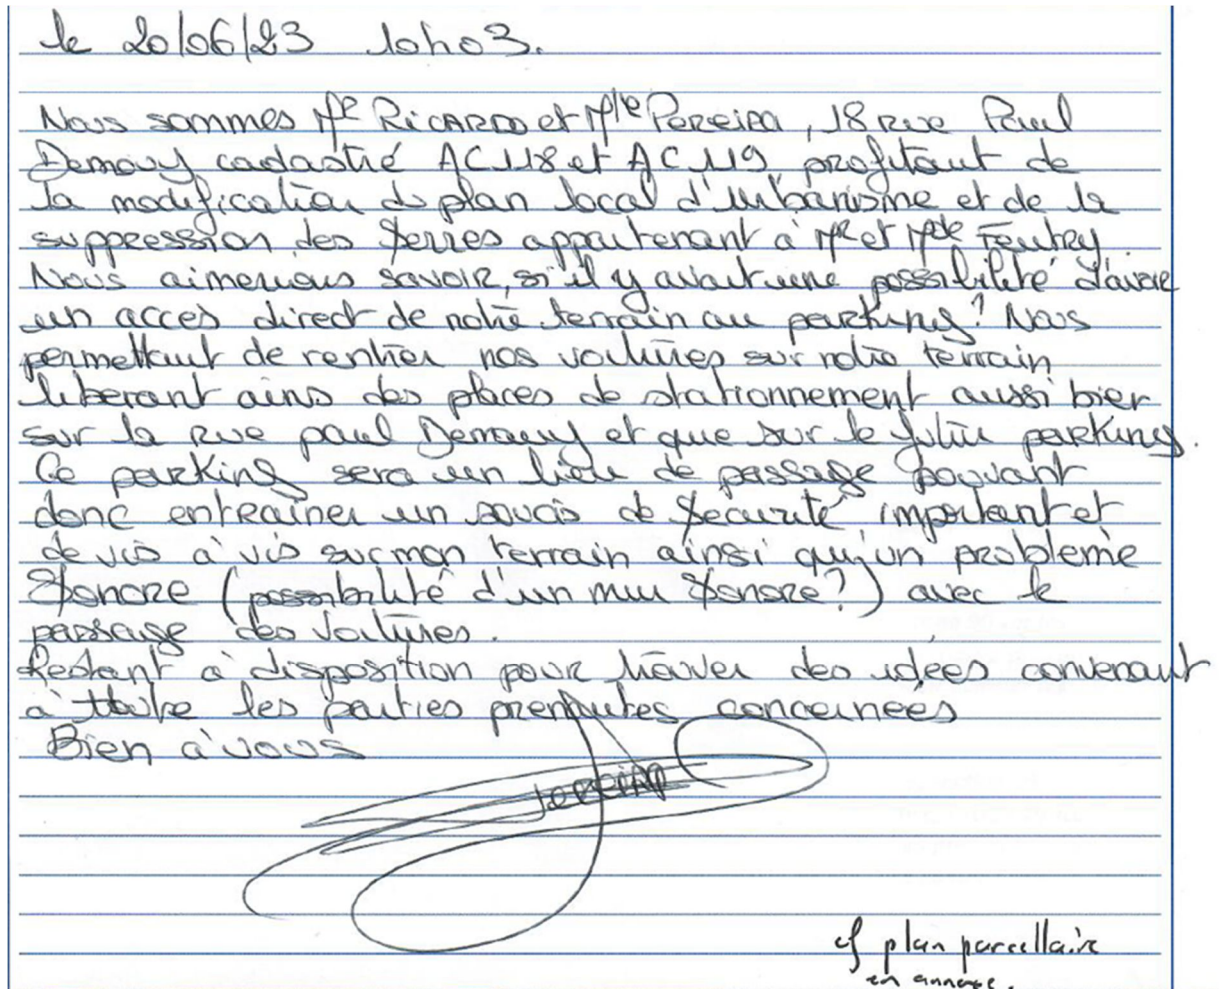 le 20/06/23 10h03.
Nous sommes Mr RICARDO et Mlle PEREIRA, 18 rue Paul
Demouy cadastré AC 118 et AC 119, profitant de
la modification du plan local d'urbanisme et de la
suppression des serres appartenant à Mr et Mde Feutry.
Nous aimerions savoir, si il y avait une possibilité d'avoir
un acces direct de notre terrain au parking? Nous
permettant de rentrer nos voitures sur notre terrain
liberant ains des places de stationnement aussi bien
sur la rue paul Demouy et que sur le futur parking.
Ce parking sera un lieu de passage pouvant
donc entraîner un soucis de securité important et
de vis à vis sur mon terrain ainsi qu'un probleme
sonore (possibilité d'un mur sonore?) avec le
passage des voitures.
Restant à disposition pour trouver des idées convenant
à les parties prenantes concernées
Bien à vous
Pereira
cf plan parcellaire
en annexe.